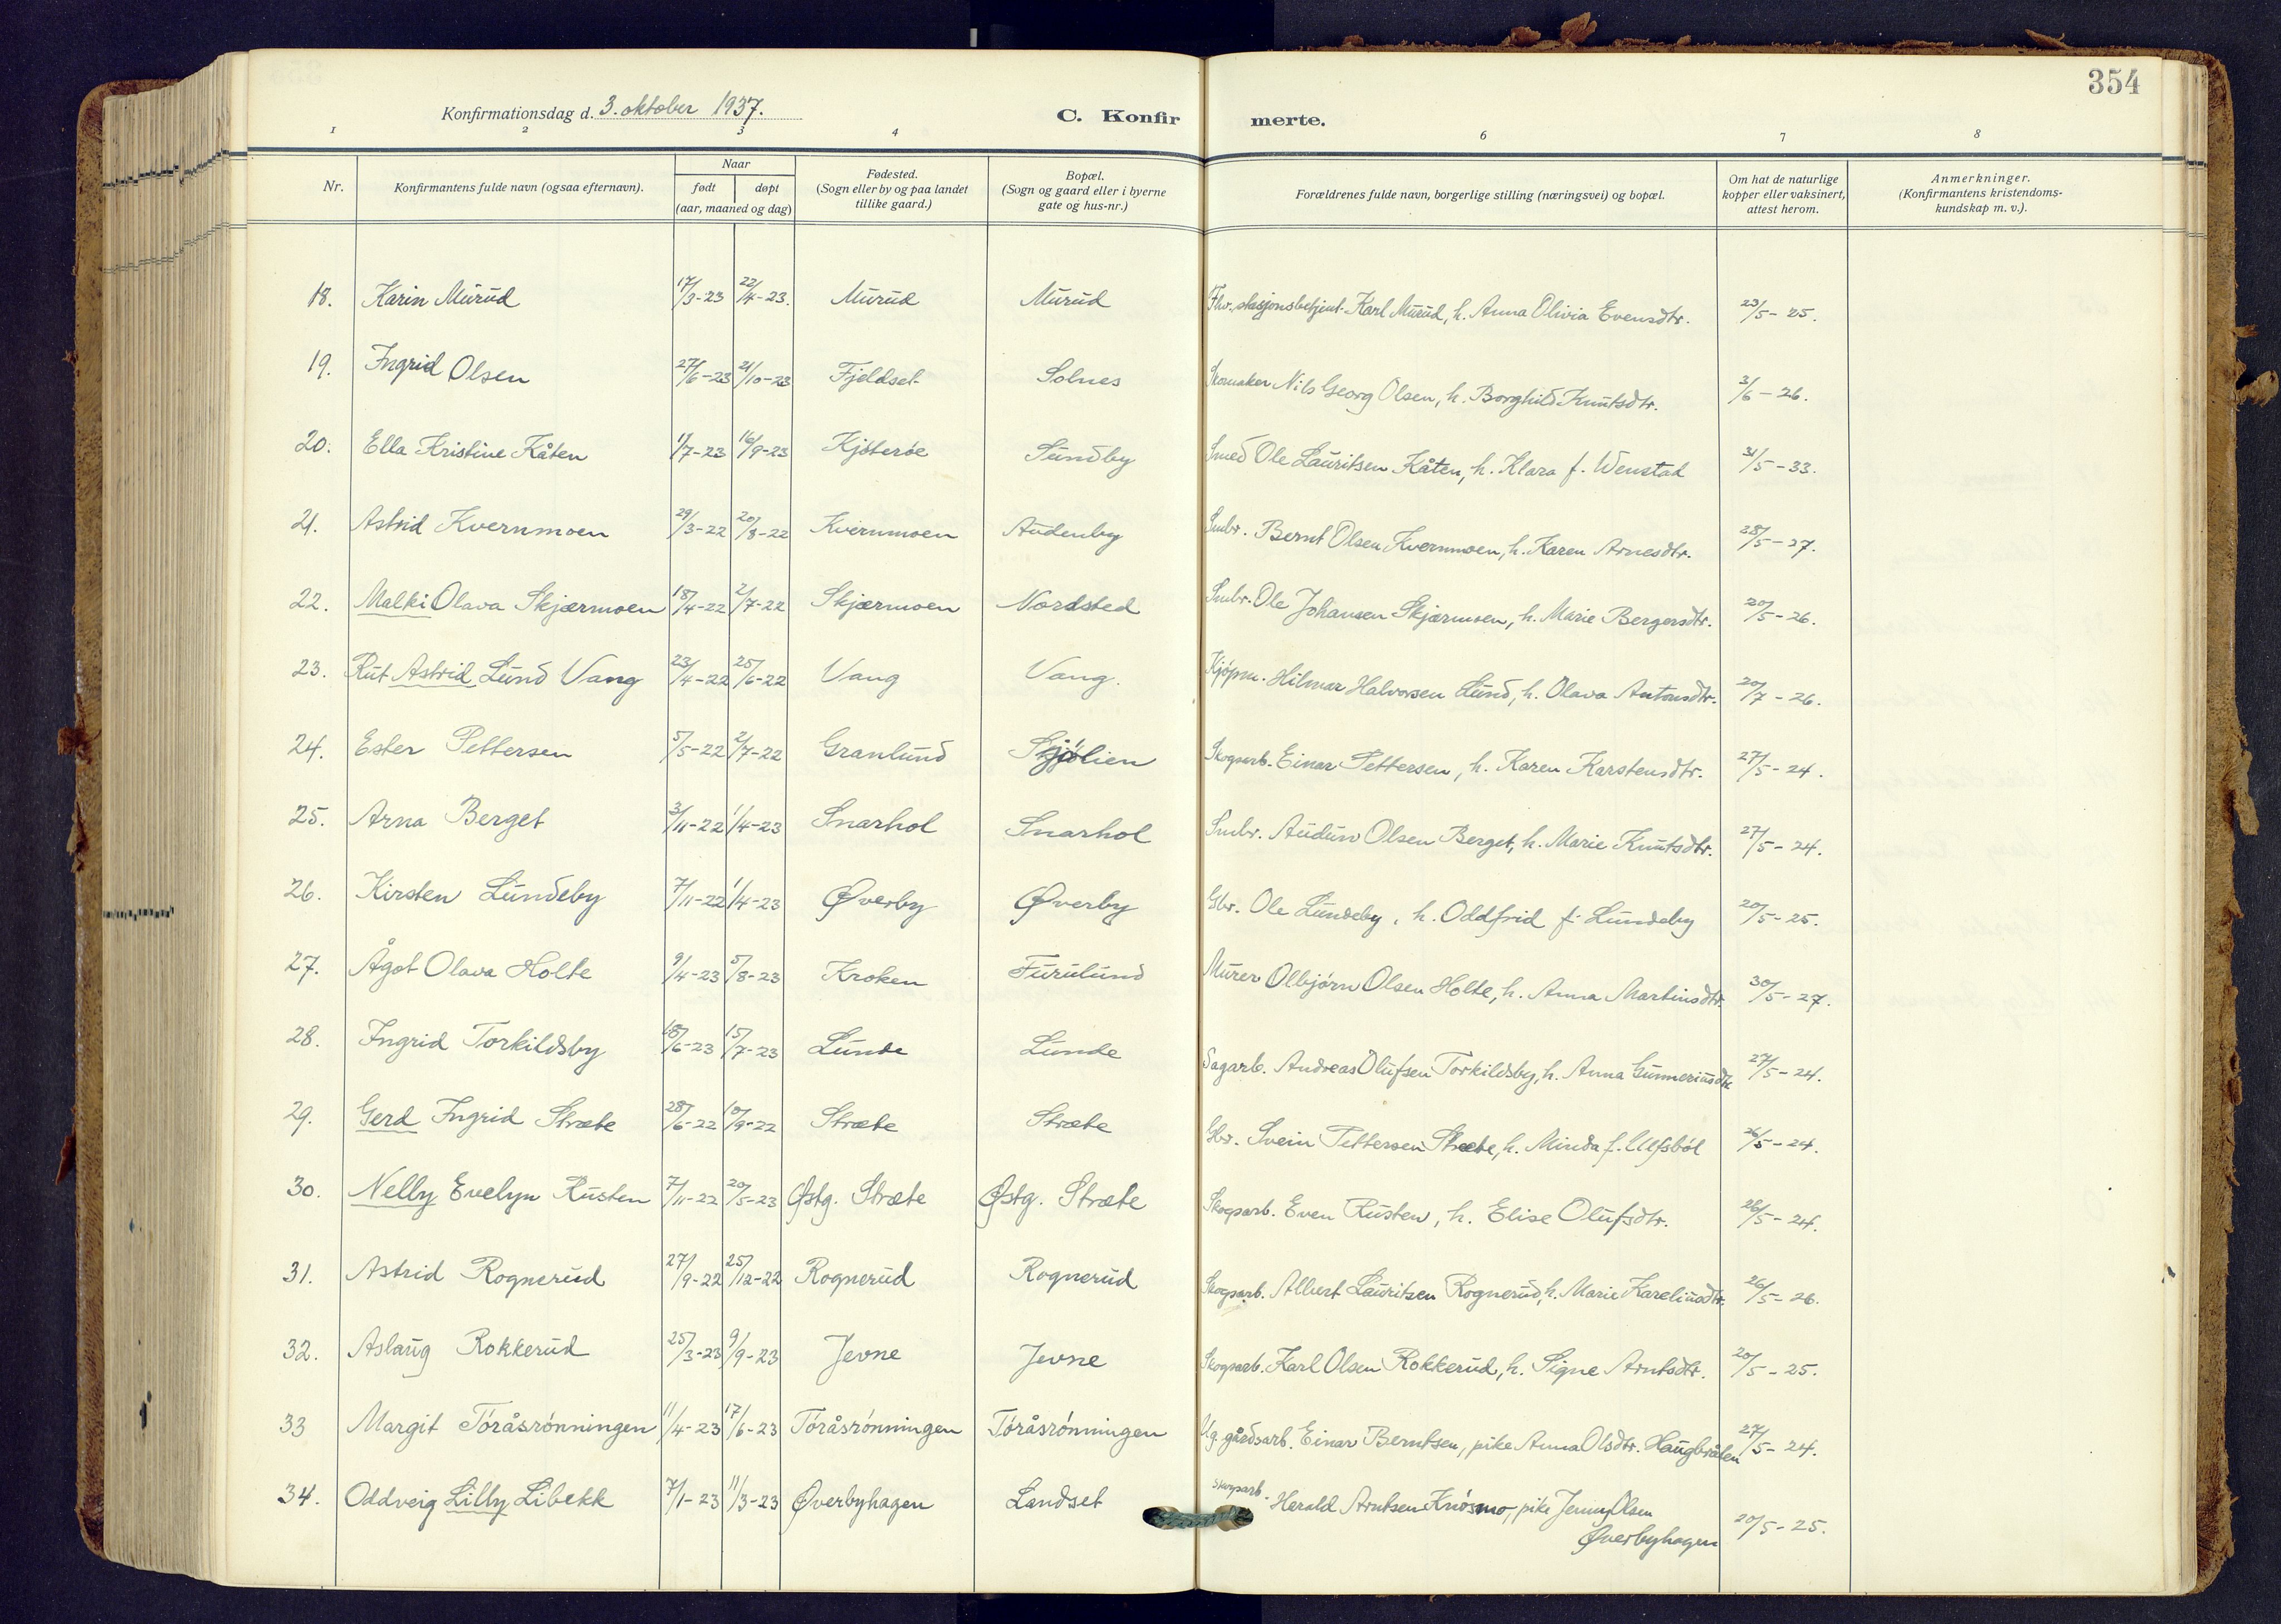 354
Konfirmationsdag d. 3. oktober 1937.
C. Konfirmerte.
1 2 3 4 6 7 8
Nr.
Konfirmantens fulde navn (ogsaa efternavn).
Naar
født døpt
(aar, maaned og dag)
Fødested.
(Sogn eller by og paa landet
tillike gaard.)
Bopæl.
(Sogn og gaard eller i byerne
gate og hus-nr.)
Forældrenes fulde navn, borgerlige stilling (næringsvei) og bopæl.
Om hat de naturlige
kopper eller vaksinert,
attest herom.
Anmerkninger.
(Konfirmantens kristendoms-
kundskap m. v.).
18. Karin Murud 17/3-23 22/4-23. Murud Murud Fhv. stasjonsbetjent Karl Murud, h. Anna Olivia Evensdtr. 23/5-25.
19. Ingrid Olsen 27/6-23 21/10-23 Fjeldset Solnes Skomaker Nils Georg Olsen, h. Borghild Knutsdtr. 3/6-26.
20. Ella Kristine Kåten 1/7-23 16/9-23 Kjøterøe Sundby Smed Ole Lauritsen Kåten, h. Klara f. Wenstad 31/5-33.
21. Astrid Kvernmoen 29/3-22 20/8-22 Kvernmoen Audenby Smbr. Bernt Olsen Kvernmoen, h. Karen Arnesdtr. 28/5-27.
22. Malki Olava Skjærmoen 18/4-22 2/7-22 Skjærmoen Nordsted Smbr. Ole Johansen Skjærmoen, h. Marie Bergersdtr. 20/5-26.
23. Rut Astrid Lund Vang 23/4-22 25/6-22 Vang Vang. Kjøpm. Hilmar Halvorsen Lund, h. Olava Antonsdtr. 20/7-26.
24. Ester Pettersen 5/5-22 2/7-22 Granlund Skjølien Skogsarb. Einar Pettersen, h. Karen Karstensdtr. 27/5-24.
25. Arna Berget 3/11-22 1/4-23 Snarhol Snarhol Smbr. Audun Olsen Berget, h. Marie Knutsdtr. 27/5-24.
26. Kirsten Lundeby 7/11-22 1/4-23 Øverby Øverby Gbr. Ole Lundeby, h. Oddfrid f. Lundeby 20/5-25.
27. Ågot Olava Holte 9/4-23 5/8-23 Kroken Furulund Murer Olbjørn Olsen Holte, h. Anna Martinsdtr. 30/5-27.
28. Ingrid Torkildsby 18/6-23 15/7-23 Lunde Lunde Sagarb. Andreas Olufsen Torkildsby, h. Anna Gunneriusdtr. 27/5-24.
29. Gerd Ingrid Stræte 28/6-22 10/9-22 Stræte Stræte Gbr. Svein Pettersen Stræte, h. Minda f. Ulfsbøl 26/5-24.
30. Nelly Evelyn Rusten 7/11-22 20/5-23 Østg. Stræte Østg. Stræte Skogsarb. Even Rusten, h. Elise Olufsdtr. 26/5-24.
31. Astrid Rognerud 27/9-22 25/12-22 Rognerud Rognerud Skogsarb. Albert Lauritsen Rognerud, h. Marie Kareliusdtr. 26/5-26.
32. Aslaug Rokkerud 25/3-23 9/9-23 Jevne Jevne Skogsarb. Karl Olsen Rokkerud, h. Signe Arntsdtr. 20/5-25.
33 Margit Toråsrønningen 11/4-23 17/6-23 Toråsrønningen Toråsrønningen Ug. gårdsarb. Einar Berntsen, pike Anna Olsdtr. Haugbråten 27/5-24.
34. Oddveig Lilly Libekk 7/1-23 11/3-23 Øverbyhagen Landset Skogsarb. Herald Arntsen Knøsmo, pike Jenny Olsen
Øverbyhagen 20/5-25.